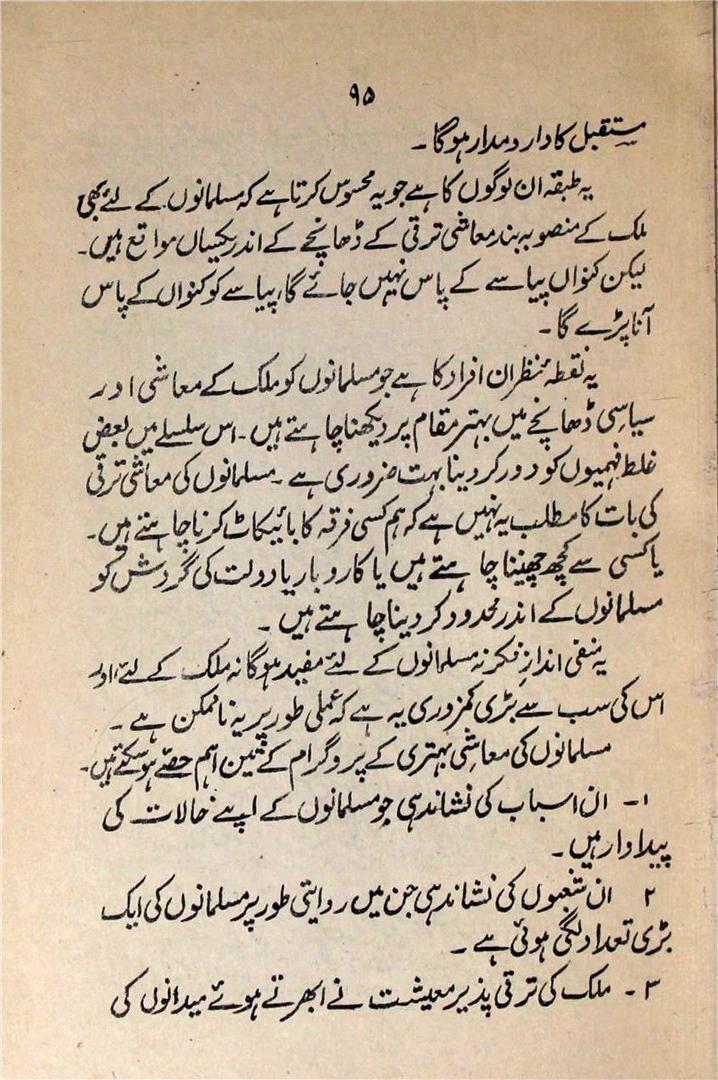 ۹۵
مستقبل کا دار و مدار ہوگا۔
یہ طبقہ ان لوگوں کا ہے جو یہ محسوس کرتا ہے کہ مسلمانوں کے لئے بھی
ملک کے منصوبہ بند معاشی ترقی کے ڈھانچے کے اندر یکساں مواقع ہیں۔
لیکن کنواں پیاسے کے پاس نہیں جائے گا، پیاسے کو کنواں کے پاس
آنا پڑے گا۔
یہ نقطۂ نظر ان افراد کا ہے جو مسلمانوں کو ملک کے معاشی اور
سیاسی ڈھانچے میں بہتر مقام پر دیکھنا چاہتے ہیں۔ اس سلسلے میں بعض
غلط فہمیوں کو دور کر دینا بہت ضروری ہے۔ مسلمانوں کی معاشی ترقی
کی بات کا مطلب یہ نہیں ہے کہ ہم کسی فرقہ کا بائیکاٹ کرنا چاہتے ہیں۔
یا کسی سے کچھ چھیننا چاہتے ہیں یا کاروبار یا دولت کی گردش کو
مسلمانوں کے اندر محدود کر دینا چاہتے ہیں۔
یہ منفی اندازِ فکر نہ مسلمانوں کے لئے مفید ہوگا نہ ملک کے لئے، اور
اس کی سب سے بڑی کمزوری یہ ہے کہ عملی طور پر یہ ناممکن ہے۔
مسلمانوں کی معاشی بہتری کے پروگرام کے تین اہم حصّے ہو سکتے ہیں۔
۱۔ ان اسباب کی نشاندہی جو مسلمانوں کے اپنے حالات کی
پیداوار ہیں۔
۲ ان شعبوں کی نشاندہی جن میں روایتی طور پر مسلمانوں کی ایک
بڑی تعداد لگی ہوئی ہے۔
۳۔ ملک کی ترقی پذیر معیشت نے ابھرتے ہوئے میدانوں کی